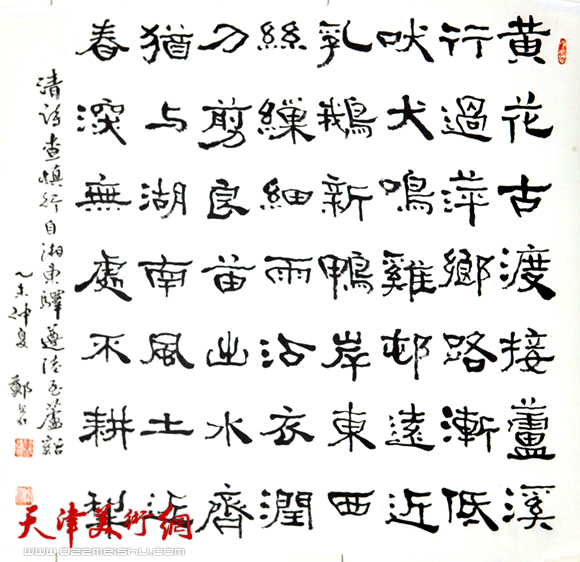 黄花古渡接蘆溪
行過萍鄉路漸低
吠犬鳴雞邨遠近
乳鵝新鴨岸東西
絲繰細雨沾衣潤
刀剪良苗出水齊
猶与湖南風土近
春深無處不耕犁
清詩查慎行自湘東驛遵陸至蘆谿
乙未仲夏 鄭
天津美術網
www.022meishu.com